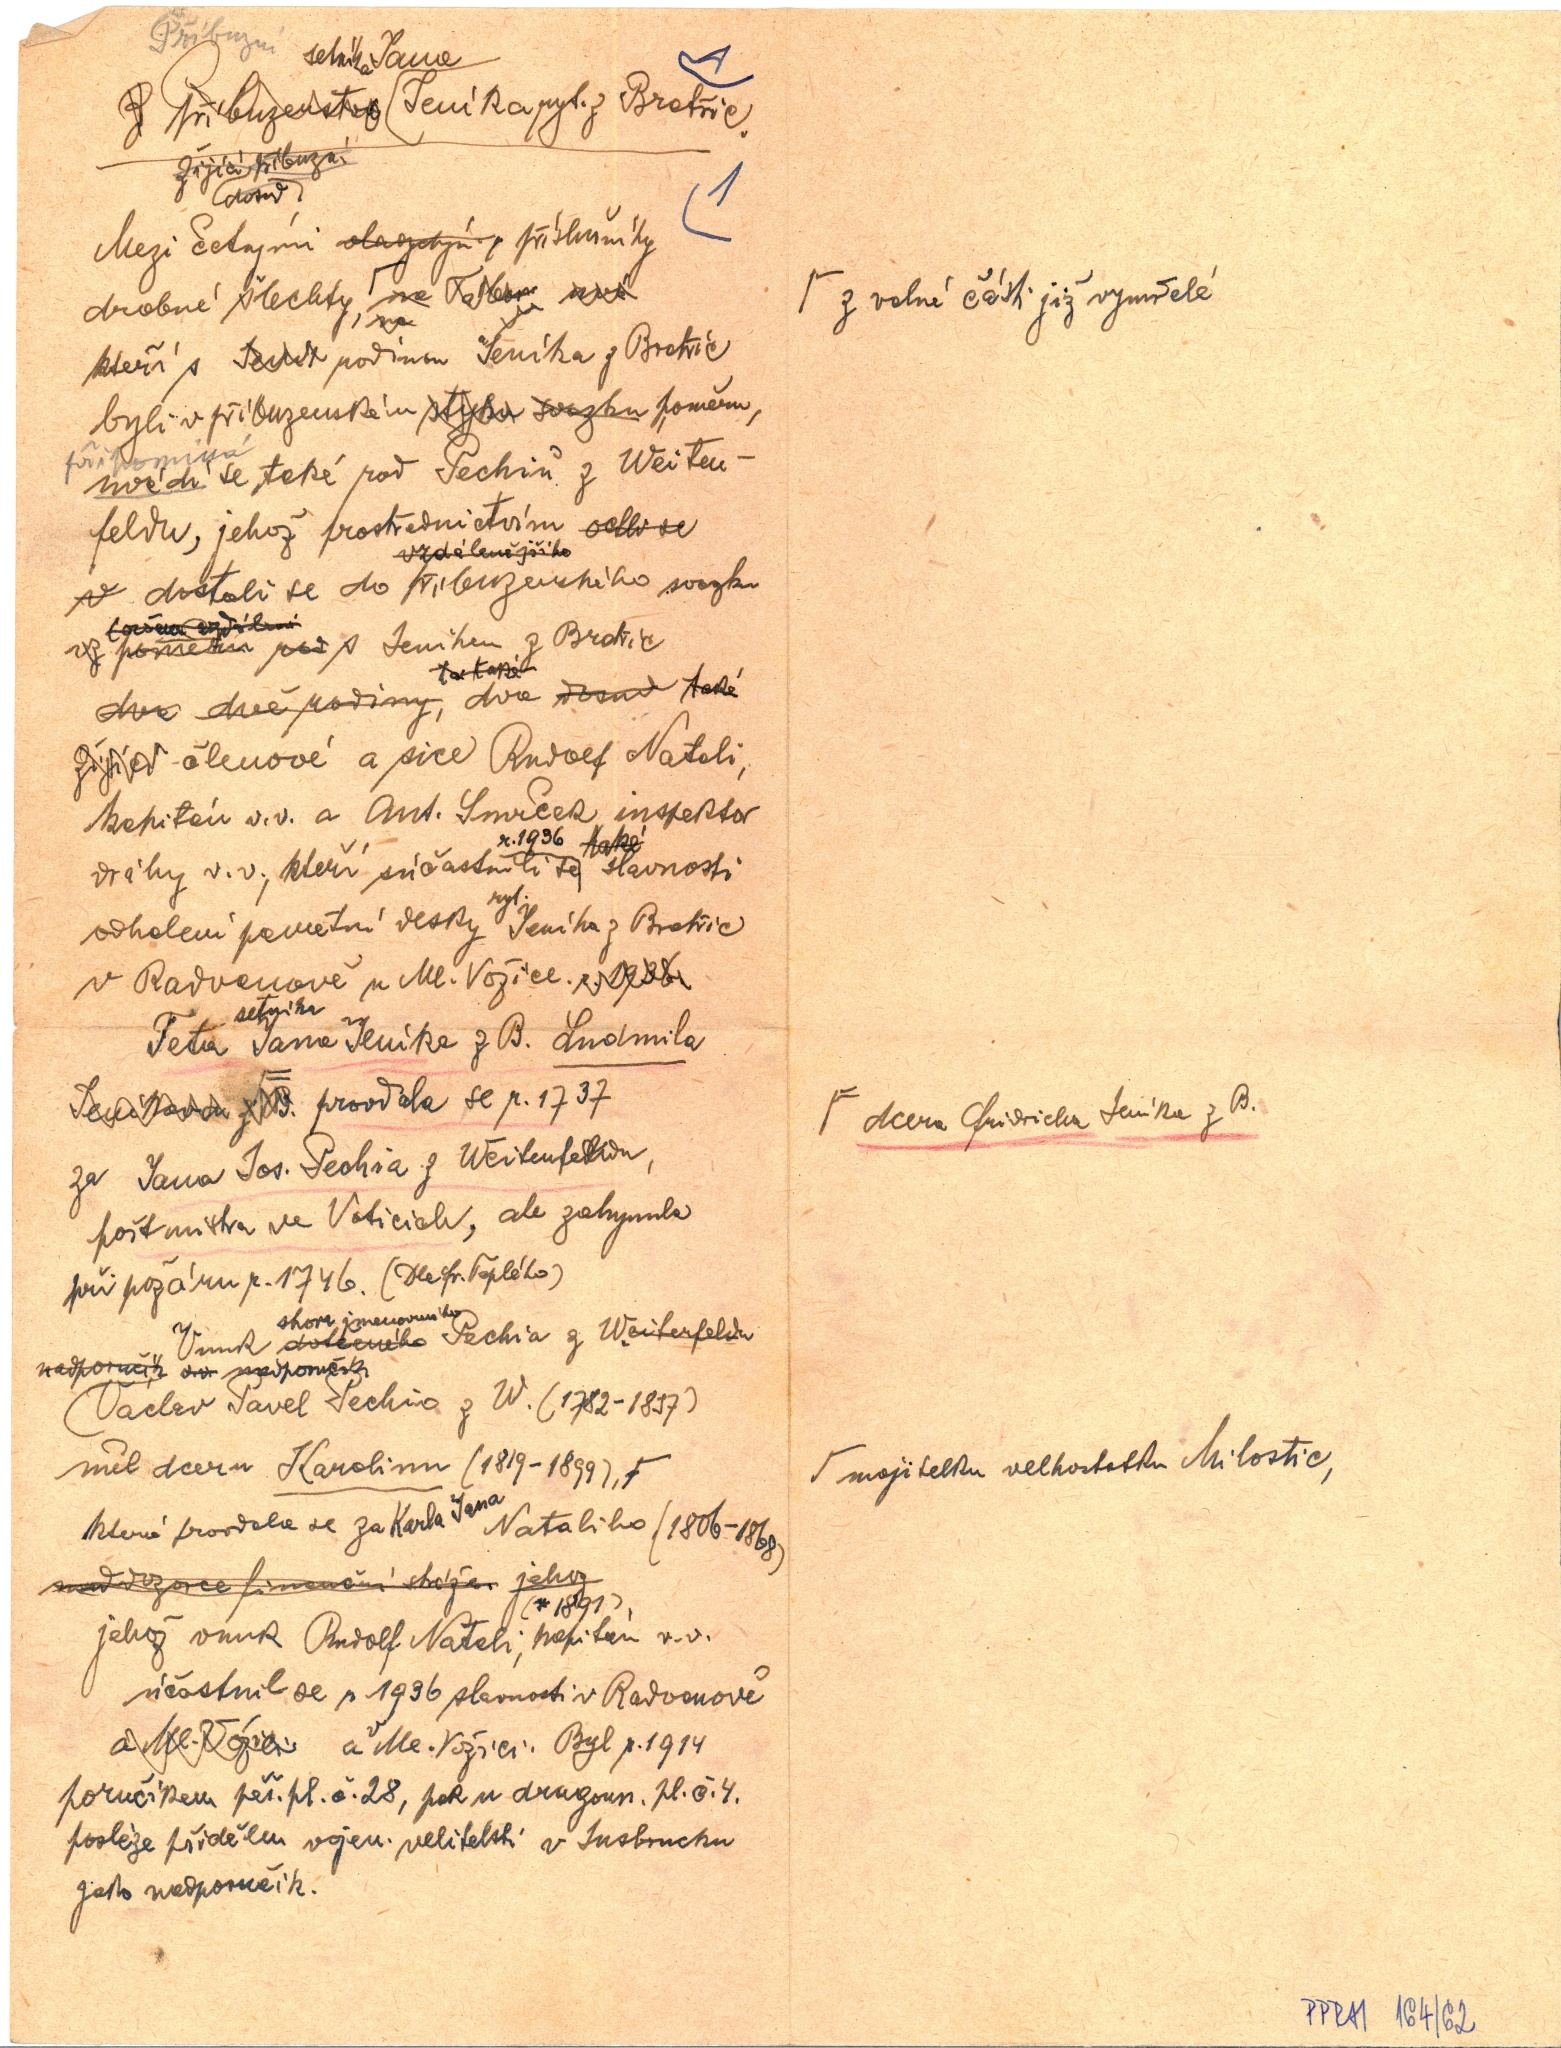 Příbuzní
setníka Jana
Z Příbuzenstva Jeníka ryt. z Bratřic.
Žijící příbuzní
dosud
1
Mezi četnými příslušníky
drobné šlechty,
┌ z valné části již vymřelé
kteří s rodinou Jeníka z Bratřic
byli v příbuzenském styku svazku poměru,
připomíná
uvádí se také rod Pechiů z Weiten-
feldu, jehož prostřednictvím
vzdálenějšího
v dostali se do příbuzenského svazku
s Jeníkem z Bratřic
ta také
dva dvě rodiny, dva dosud také
členové a sice Rudolf Natali,
kapitán v.v. a Ant. Smrček inspektor
r. 1936 také
dráhy v.v., kteří súčastnili se slavnosti
ryt.
odhalení pamětní desky Jeníka z Bratřic
v Radvanově u Ml. Vožice. r. 1936.
setníka
Teta Jana Jeníka z B. Ludmila
┌ dcera Fridricha Jeníka z B.
Jeníkova z B. provdala se r. 1737
za Jana Jos. Pechia z Weitenfeldu,
poštmistra ve Voticích, ale zahynula
při požáru r. 1746. (Dle Fr. Teplého)
shora jmenovaného
Vnuk dotčeného Pechia z Weitenfeldu
nadporučík nadporučík
Václav Pavel Pechio z W. (1782-1857)
měl dceru Karolinu (1819-1899), ┌
┌ majitelku velkostatku Milostic,
která provdala se za Karla Jana Nataliho (1806-1868)
nad dozorce finanční stráže. jehož
(* 1891),
jehož vnuk Rudolf Natali, kapitán v.v.
účastnil se r 1936 slavnosti v Radvanově
a Ml. Vožici a v Ml. Vožici. Byl r. 1914
poručíkem pěš. pl. č. 28, pak u dragoun. pl. č. 4.
posléze přidělen vojen. velitelství v Insbrucku
jako nadporučík.
PPRAI 164/62